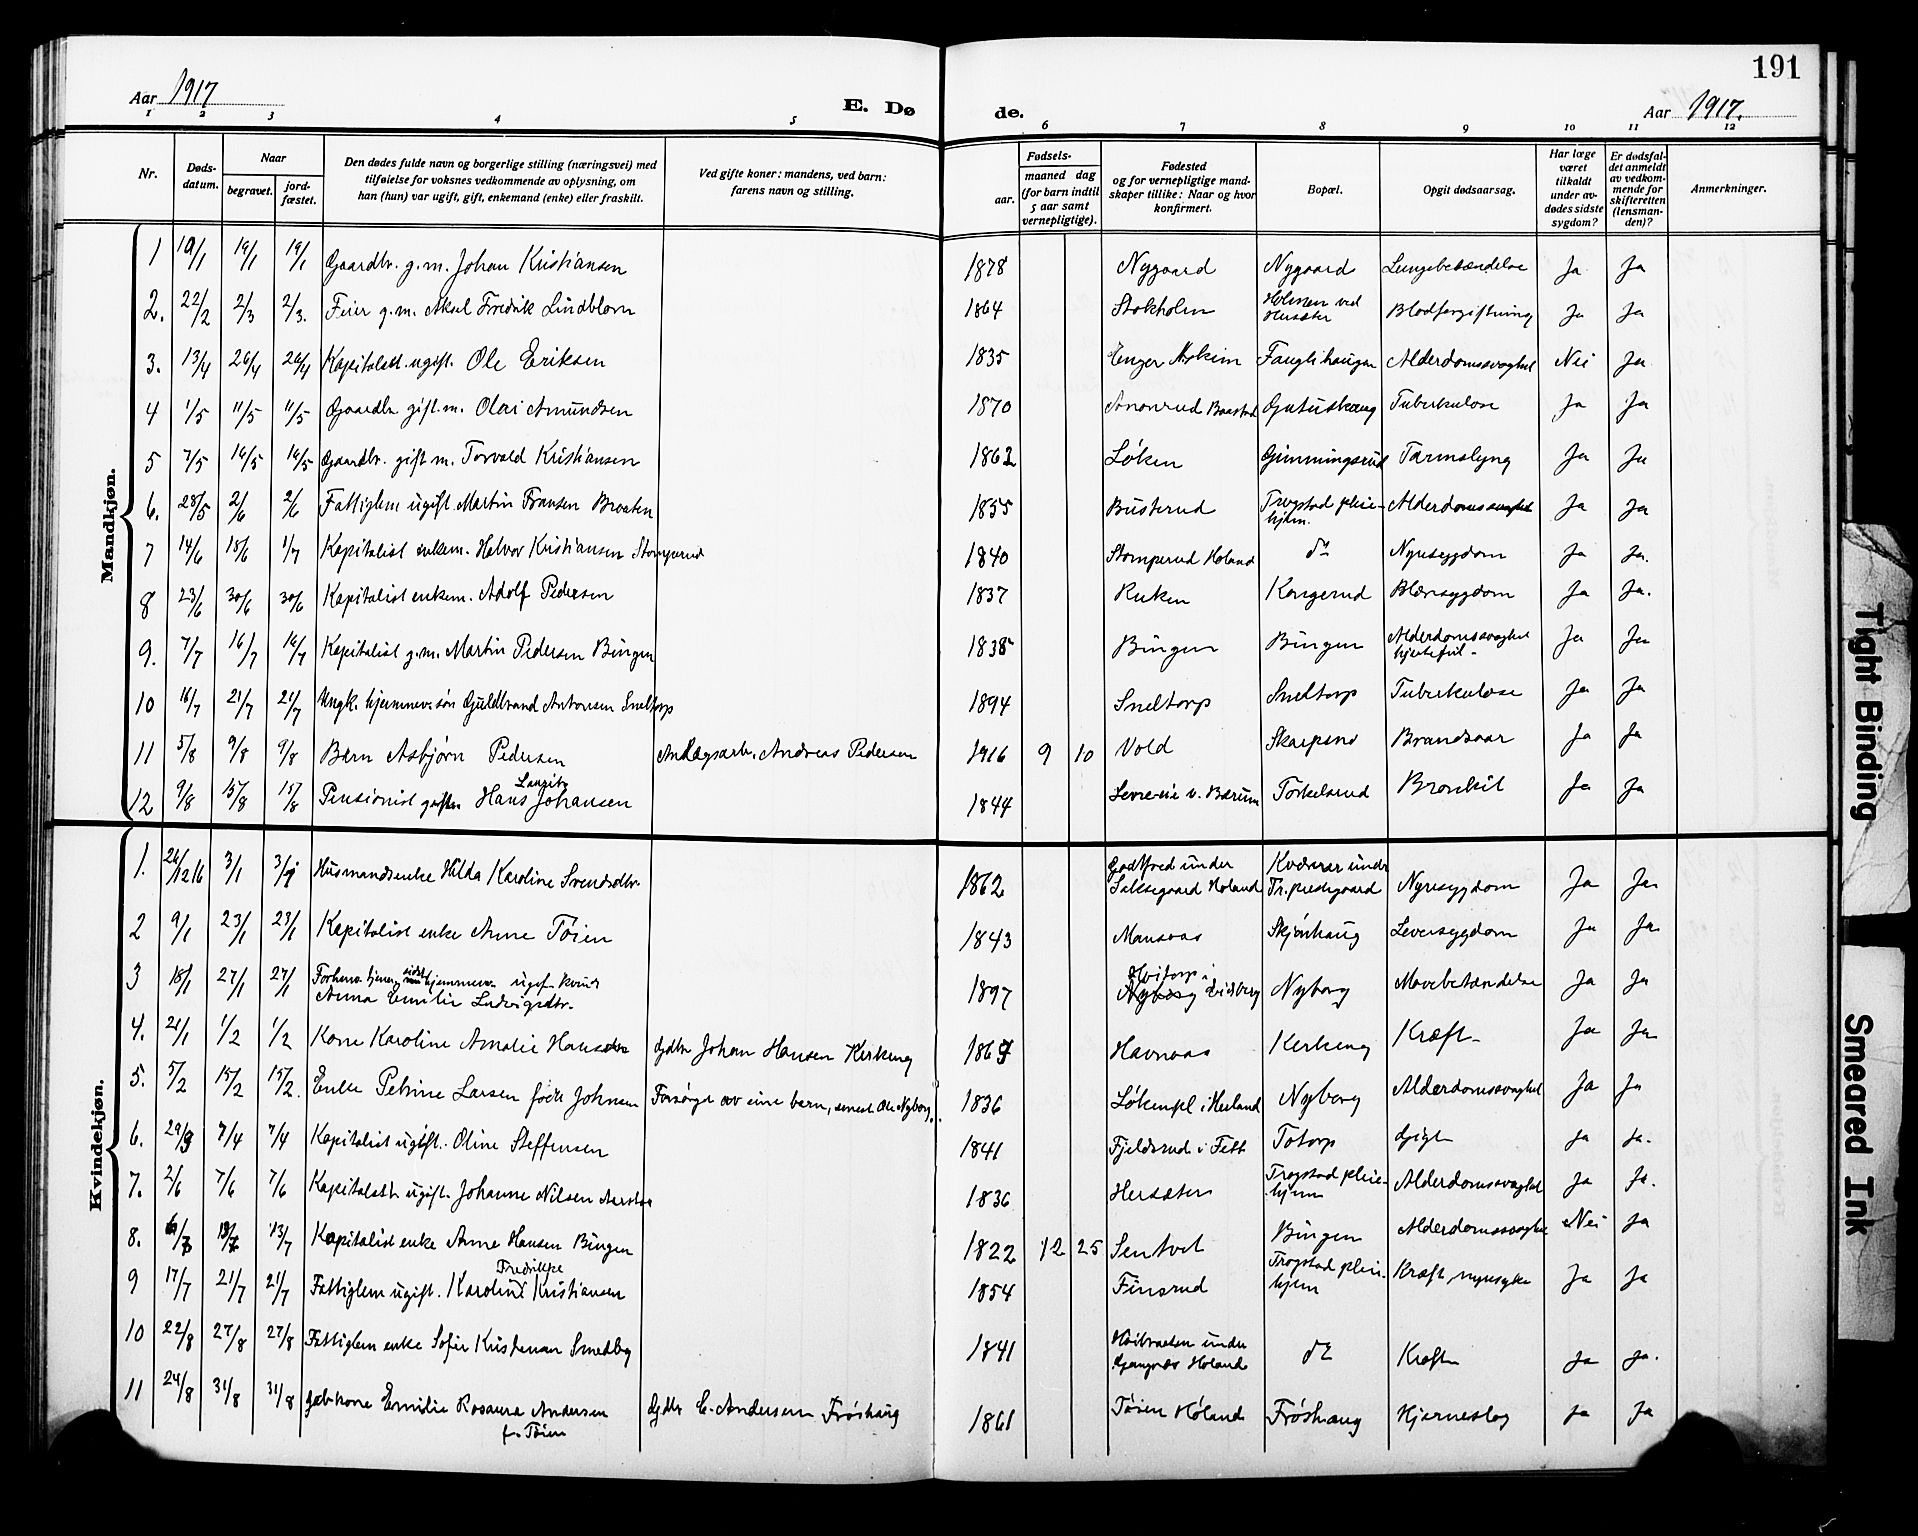 191
Aar 1917
E. Dø de.
Aar 1917.
1 2 3 4 5 6 7 8 9 10 11 12
Nr.
Døds-
datum.
Naar
begravet.
jord-
fæstet.
Den dødes fulde navn og borgerlige stilling (næringsvei) med
tilføielse for voksnes vedkommende av oplysning, om
han (hun) var ugift, gift, enkemand (enke) eller fraskilt.
Ved gifte koner: mandens, ved barn:
farens navn og stilling.
Fødsels-
aar.
maaned dag
(for barn indtil
5 aar samt
vernepligtige).
Fødested
og for vernepligtige mand-
skaper tillike: Naar og hvor
konfirmert.
Bopæl.
Opgit dødsaarsag.
Har læge
været
tilkaldt
under av-
dødes sidste
sygdom?
Er dødsfal-
det anmeldt
av vedkom-
mende for
skifteretten
(lensman-
den)?
Anmerkninger.
Mandkjøn.
1 19/1 19/1 Gaardbr. g.m. Johan Kristiansen 1878 Nygaard Nygaard Lungebetændelse Ja Ja
2. 22/2 2/3 2/3. Feier g.m. Aksel Fredrik Lindblom 1864 Stokholm Holmen ved Hersæter Blodforgiftning Ja Ja
3. 13/4 26/4 26/4 Kapitalist ugift. Ole Eriksen 1835 Enger Askim Fauglihaugen Alderdomssvaghet Nei Ja
4 1/5 11/5 11/5 Gaardbr gift.m. Olai Amundsen 1870 Baastad Tuberkulose Ja Ja
5 7/5 16/5 16/5 Gaardbr. gift m. Torvald Kristiansen 1862 Løken Gimmingsrud Tarmslyng Ja Ja
6. 28/5 2/6 2/6 Fattiglem ugift Martin Fransen Braaten 1855 Busterud Trogstad pleie-hjem. Alderdomssvaghet Ja Ja
7 14/6 18/6 1/7 Kapitalist enkem. Halvor Kristiansen Stomperud 1840 Stomperud Høland do Nyresygdom Ja Ja.
8 23/6 30/6 30/6 Kapitalist enkem. Adolf Pedersen 1837 Ruken Kongerud Blæresygdom Ja Ja.
9. 7/7 16/7 16/7 Kapitalist g.m. Martin Pedersen Bingen 1838 Bingen Bingen Alderdomssvaghet hjertefeil- Ja Ja
10 16/7 21/7 21/7 Ungk. hjemmev. søn Guldbrand Antonsen Sneltorp 1894 Sneltorp Sneltorp Tuberkulose Ja Ja
11 5/8 9/8 9/8 Barn Asbjørn Pedersen Anlægsarb. Andreas Pedersen 1916 9 10 Vold Skarpsno Brandsaar Ja Ja
12 9/8 15/8 15/8 Pensionist gift m Hans Lauritz Johansen 1844 v. Bærum Torkelsrud Bronkit Ja Ja
Kvindekjøn.
1. 26/12 16 3/1 3/1 Husmandsenke Hilda Karoline Svendsdtr. 1862 Godtfred under Høland Kværner under Tr. prestegaard Nyresygdom Ja Ja
2 9/1 23/1 23/1 Kapitalist enke Anne Tøien 1843 Monsaas Skjønhaug Leversygdom Ja Ja
3 18/1 27/1 27/1 Forhenv. tjener, sidst hjemmev. ugift kvinde Anna Emilie Ludvigsdtr. 1897 Hvitorp i Eidsberg Nyborg Mavebetændelse Ja Ja
4. 21/1 1/2 1/2 Kone Karoline Amalie Hansen Gdbr Johan Hansen Kirkeng 1867 Havnaas Kirkeng Kræft- Ja Ja
5. 5/2 15/2 15/2. Enke Petrine Larsen født Johnsen Forsørget av sine børn, senest Ole Nyborg. 1836 Løkenpl. i Høland Nyborg Alderdomssvaghet Ja Ja
6. 29/3 7/4 7/4 Kapitalist ugift. Oline Steffensen 1841 Fjeldsrud i Fett Totorp Gigt Ja Ja.
7. 2/6 7/6 7/6 Kapitalist ugift. Johanne Nilsen Aarstad 1836 Hersæter Trogstad pleie-hjem Alderdomssvaghet Ja Ja.
8. 6/7 13/7 13/7 Kapitalist enke Anne Hansen Bingen 1822 12 25 Sentvet Bingen Alderdomssvaghet Nei Ja
9 17/7 21/7 21/7 Fattiglem ugift. Karoline Fredrikke Kristiansen 1854 Finsrud Trogstad pleie-hjem Kræft, nyresyke Ja Ja
10 22/8 27/8 27/8 Fattiglem enke Sofie Kristensen Smedby 1841 Høibraaten under Høland do Kræft Ja Ja.
11 24/8 31/8 31/8 Gdbrkone Emilie Rosaura Andersen f. Tøien Gdbr C. Andersen Frøshaug 1861 Tøien Høland Frøshaug Hjerneslag Ja Ja
Tight Binding
Smeared Ink